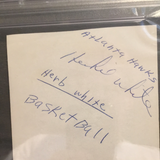 Atlanta Hawks
Herb White
Herb White
Basketball